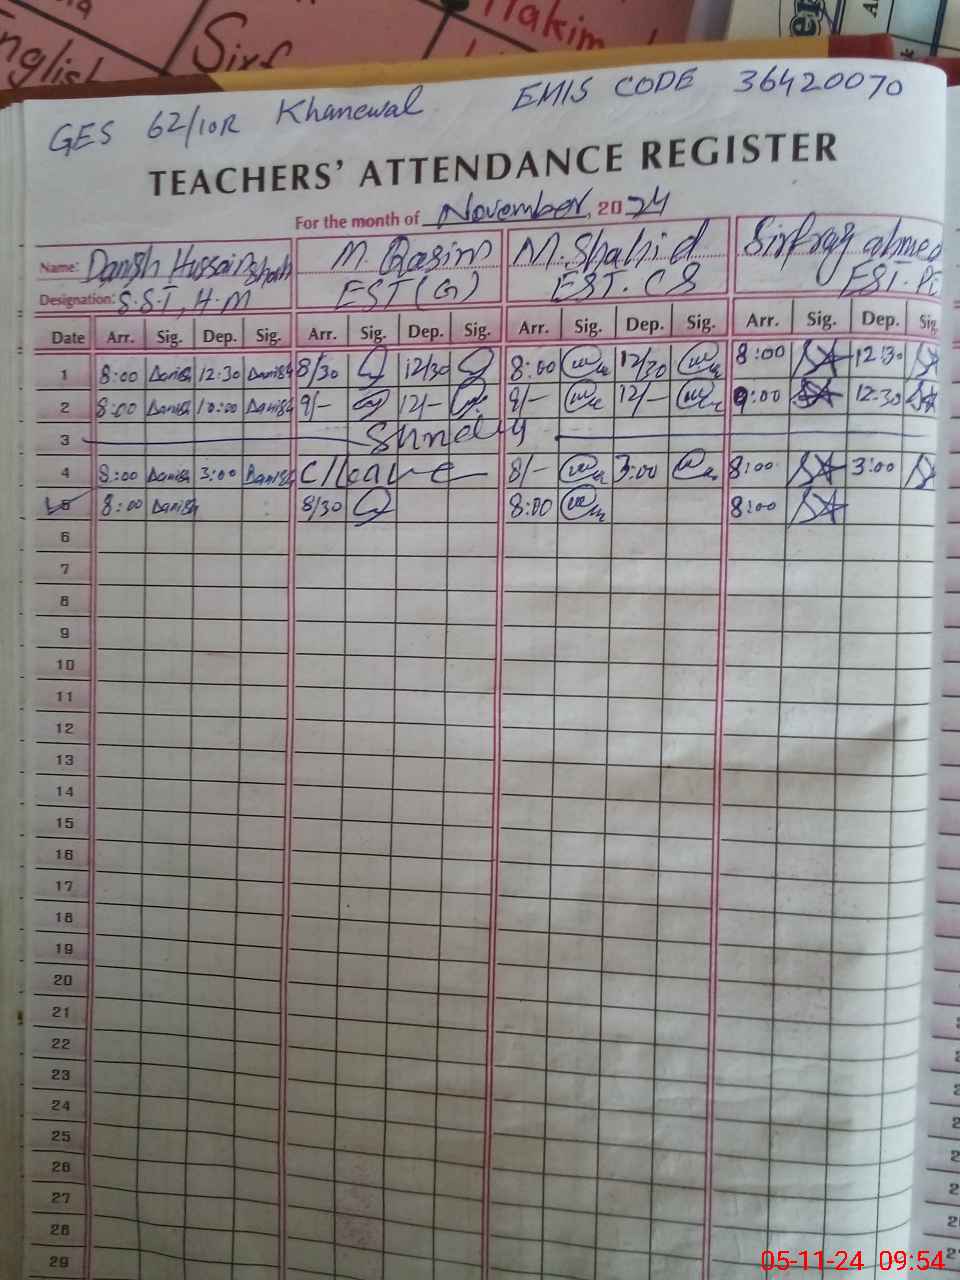 nglish Sirf Hakim
GES 62/10R Khanewal EMIS CODE 36420070
TEACHERS' ATTENDANCE REGISTER
For the month of November, 2024
Name: Danish Hussain Shah M. Qasim M. Shahid Sirfraz ahmed
Designation: S.S.T, H.M EST (G) EST. CS EST. PE
Date Arr. Sig. Dep. Sig. Arr. Sig. Dep. Sig. Arr. Sig. Dep. Sig. Arr. Sig. Dep. Sig
1 8:00 Danish 12:30 Danish 8/30 12/30 8:00 12/30 8:00 12:30
2 8:00 Danish 10:00 Danish 9/- 12/- 9/- 12/- 9:00 12:30
3 Sunday
4 8:00 Danish 3:00 Danish C/leave 8/- 3:00 8:00 3:00
5 8:00 Danish 8/30 8:00 8:00
6
7
8
9
10
11
12
13
14
15
16
17
18
19
20
21
22
23
24
25
26
27
28
29
05-11-24 09:54